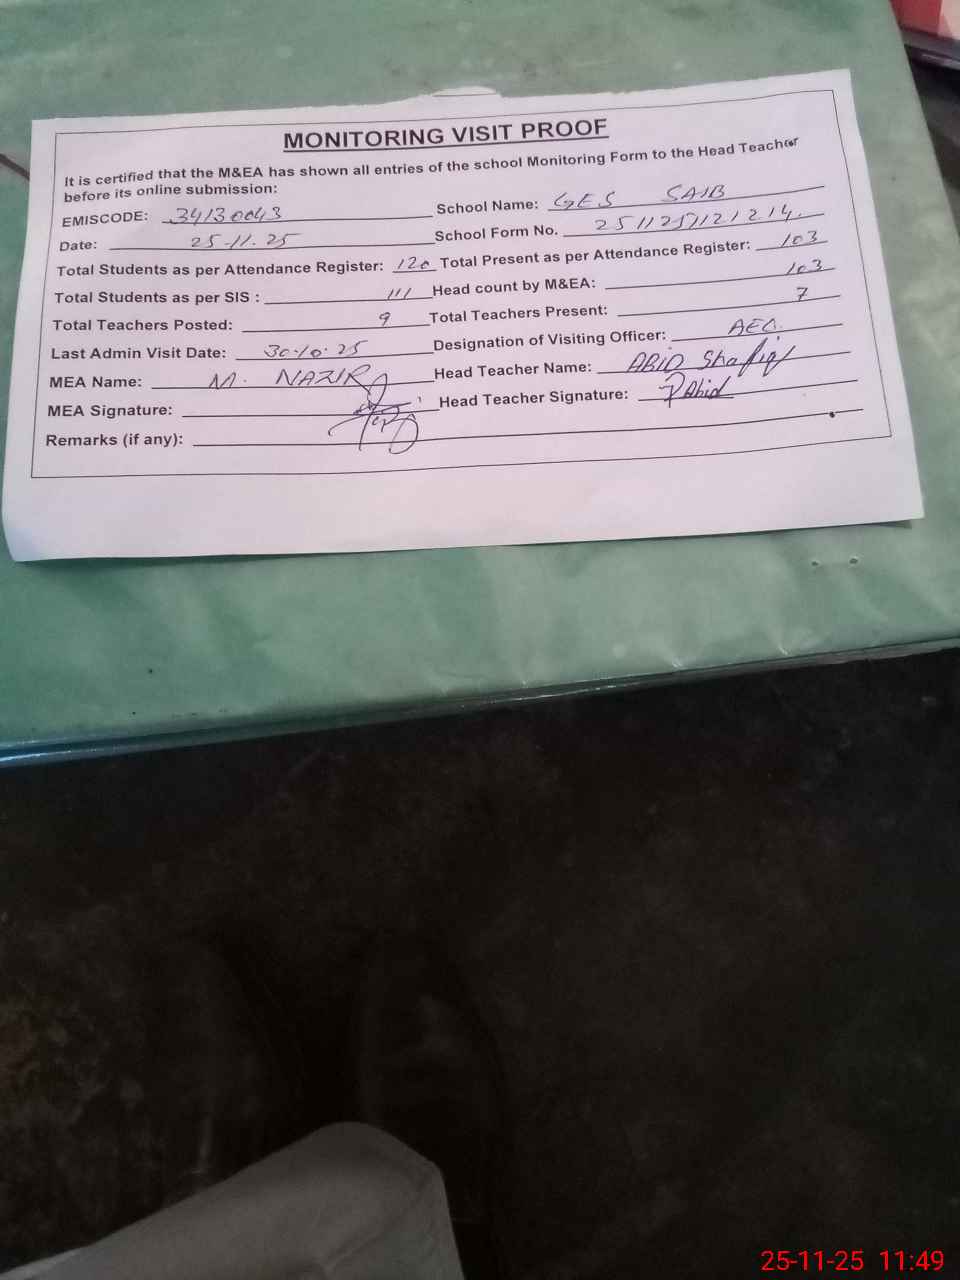 MONITORING VISIT PROOF
It is certified that the M&EA has shown all entries of the school Monitoring Form to the Head Teacher
before its online submission:
EMISCODE: 34130043 School Name: GES SAIB
Date: 25-11-25 School Form No. 251125121214
Total Students as per Attendance Register: 120 Total Present as per Attendance Register: 103
Total Students as per SIS : 111 Head count by M&EA: 103
Total Teachers Posted: 9 Total Teachers Present: 7
Last Admin Visit Date: 30-10-25 Designation of Visiting Officer: AEO.
MEA Name: M. NAZIR Head Teacher Name: ABID Shafiq
MEA Signature: Head Teacher Signature: Abid
Remarks (if any):
25-11-25 11:49